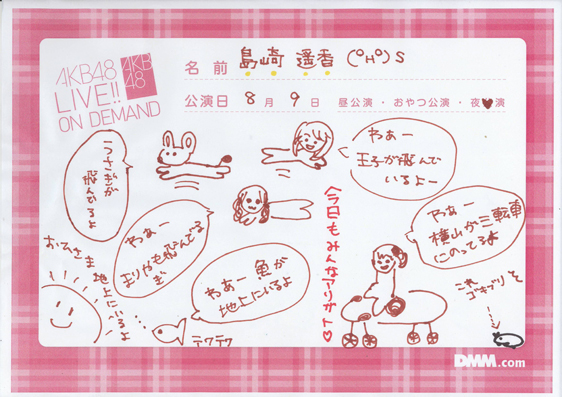 AKB48
LIVE!!
ON DEMAND
AKB
48
名前 島崎 遥香 (°H°)S
公演日 8月9日 昼公演・おやつ公演・夜♥演
うさぎが
飛んで
るよ
わぁー
王子が飛んで
いるよー
わぁー
まりやも飛んでる
ぞ
わぁー 魚が
地上にいるよ
今日もみんなアリガト♡
わぁー
横山が三転車
にのってるよ
おひさま
地上にいるよ
テクテク
これ
ゴキブリ
DMM.com